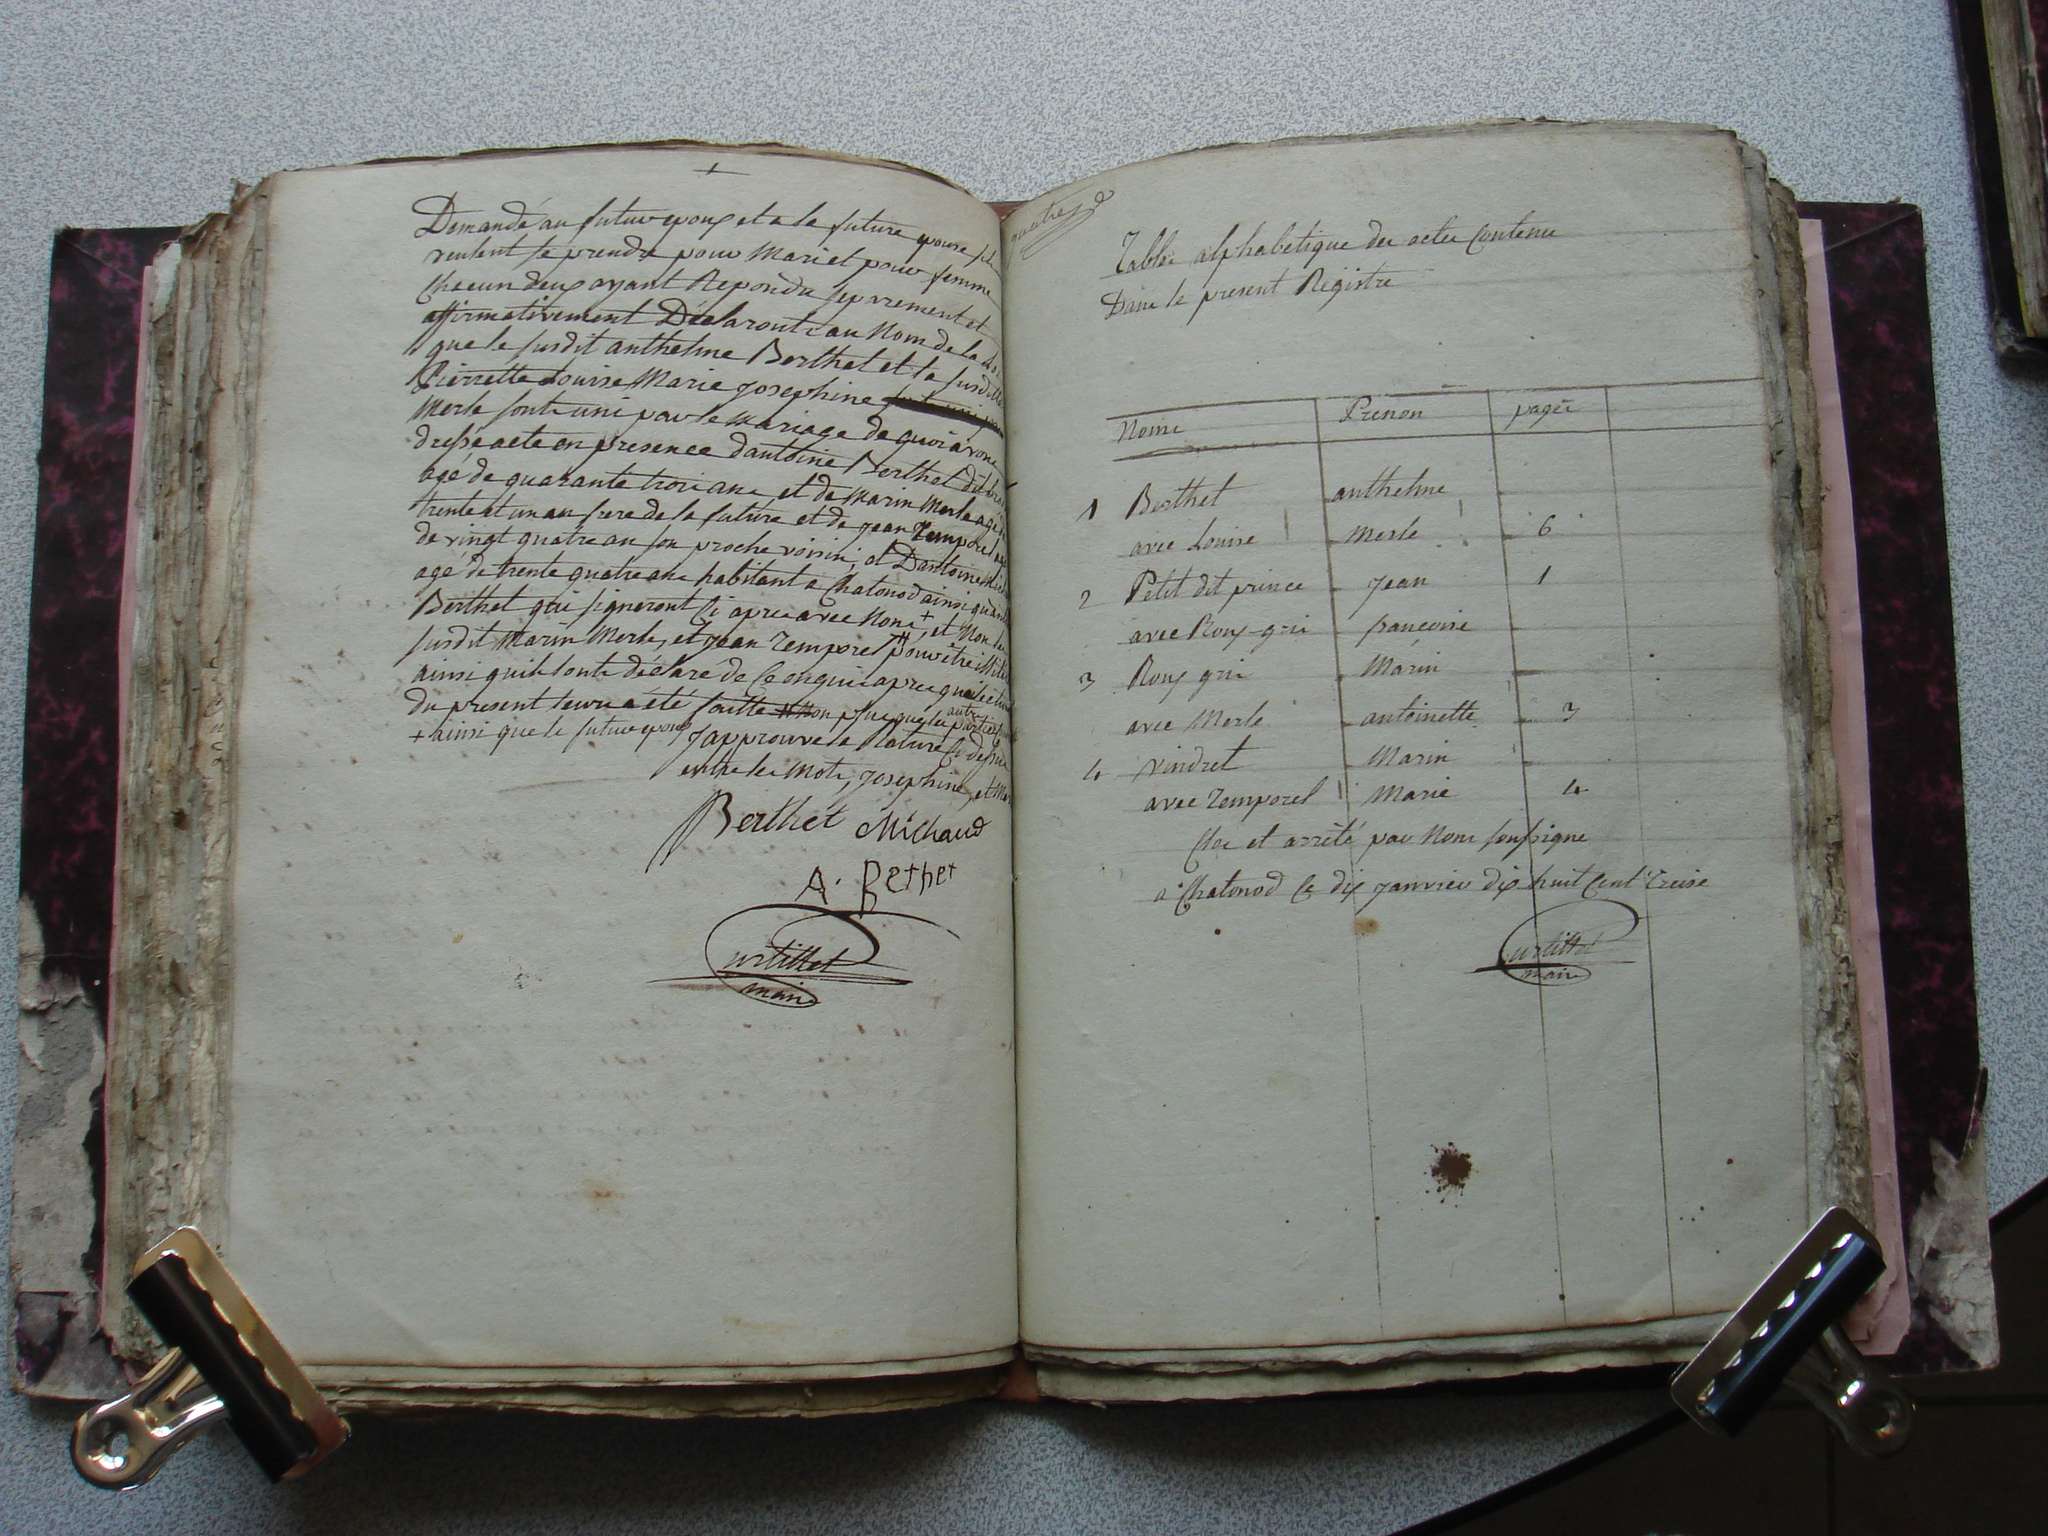 Demandé au futur epoux et a la future epouse s'ils
veulent se prendre pour Mari et pour femme
Chacun deux ayant Repondu separement et
affirmativement Déclaronts au Nom de la
que le susdit anthelme Berthet et la susditte
Pierrette Louise Marie Josephine
Merle sont uni par le Mariage de quoi avons
dressé acte en presence dantoine Berthet dit
agé de quarante trois ans et de Marin Merle agé
trente et un an frere de la future et de Jean Temporel
de vingt quatre an son proche voisin, et Dantoine
agé de trente quatre ans habitant a Chatonod ainsi
Berthet qui signeront Ci apres avec Nous + et Non le
susdit Marin Merle, et Jean Temporel pour être
ainsi quils ont déclaré de Ce enquis apres que
du present leur a été faitte Non plus que les autres parties
+ ainsi que le futur epoux
J'approuve la Rature Ci dessus
entre les Mots, Josephine, et
Berthet Michaud
A. Bethet
urtillet
maire
Table alphabetique des actes Contenu
Dans le present Régistre
Noms Prenon pages
1 Berthet anthelme
avec Louise Merle 6
2 Petit dit prince Jean 1
avec Roux-gris francoise
3 Roux gris Marin
avec Merle antoinette 3
4 Vindret Marin
avec Temporel Marie 4
Clos et arrété par Nous soussigne
a Chatonod Ce dix Janvier dix huit Cent Treise
urtillet
maire